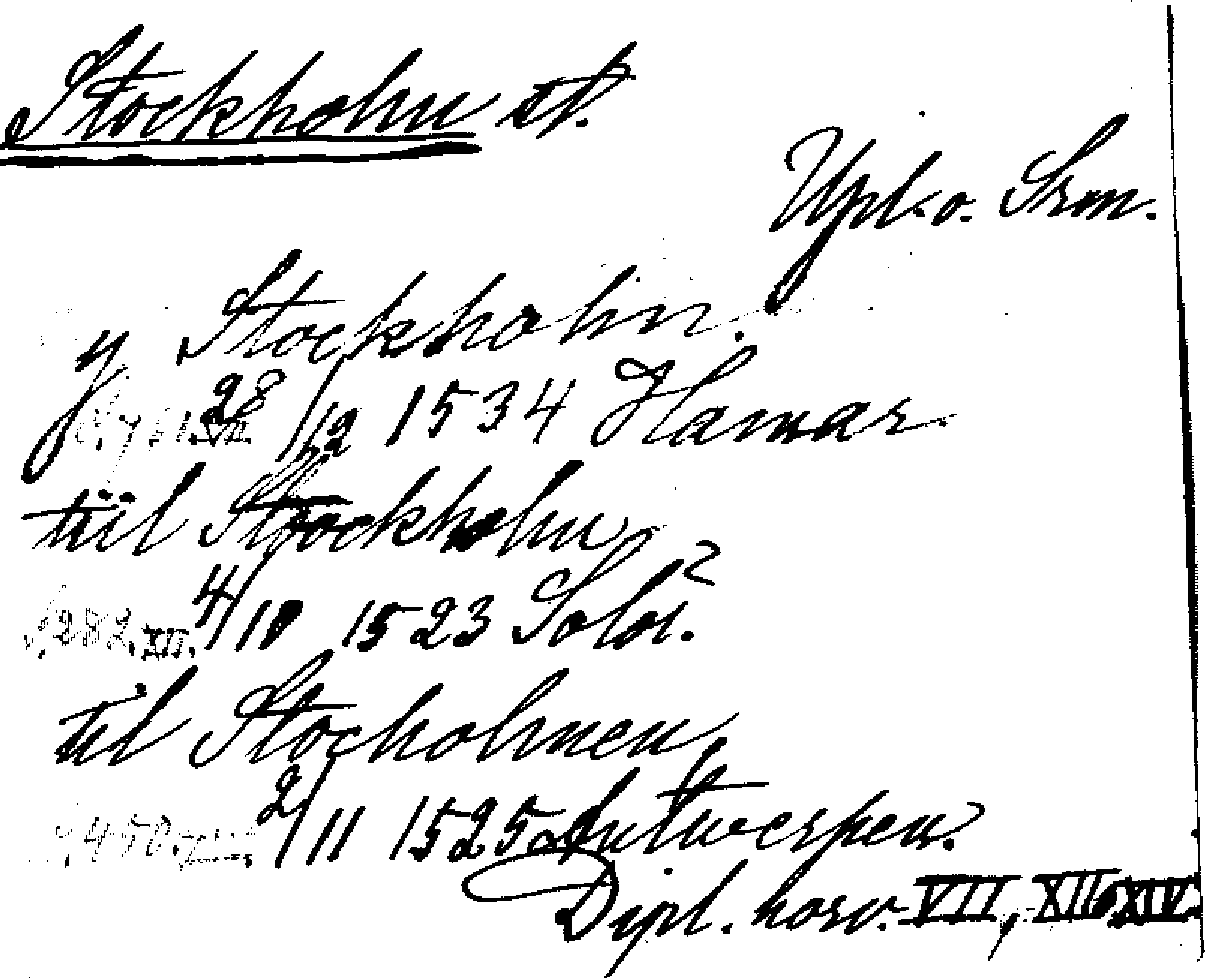 Stockholm st.
Upl. o. Srm.
y Stockholm.
28/12 1534 Hamar.
tiil Stockholm
s. 282. XII. 4/10 1523 Solör?
til Stocholmen
2/11 1525 Antwerpen.
Dipl. norv. VII, XII o XIV.